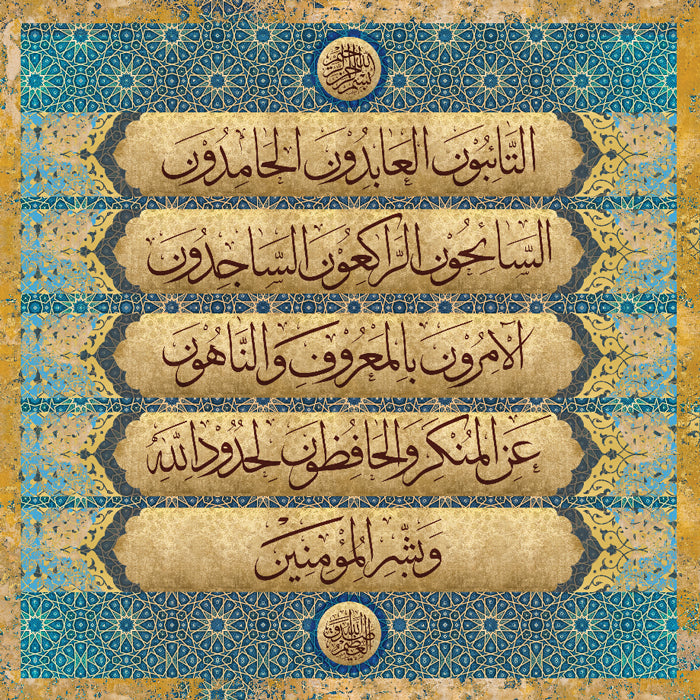 بسم الله الرحمن الرحيم
التَّائِبُوْنَ الْعَابِدُوْنَ الْحَامِدُوْنَ
السَّائِحُوْنَ الرَّاكِعُوْنَ السَّاجِدُوْنَ
الْآمِرُونَ بِالْمَعْرُوفِ وَالنَّاهُوْنَ
عَنِ الْمُنْكَرِ وَالْحَافِظُوْنَ لِحُدُوْدِ اللّٰهِ
وَبَشِّرِ الْمُؤْمِنِيْنَ
صدق الله العظيم